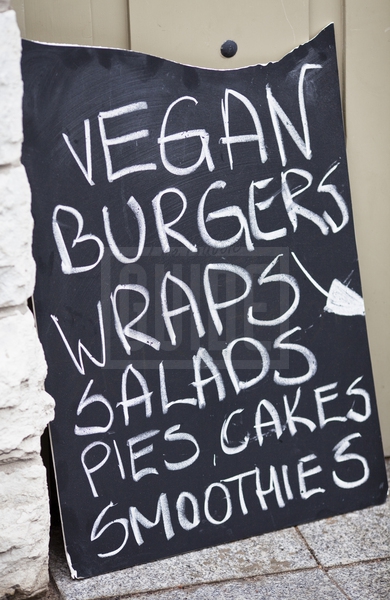 VEGAN
BURGERS
WRAPS
SALADS
PIES, CAKES
SMOOTHIES